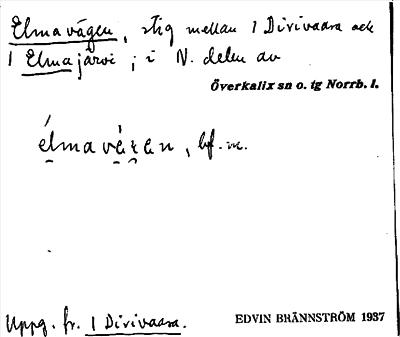 Elmavägen, stig mellan 1 Divivaara och
1 Elmajärvi; i N. delen av
Överkalix sn o. tg Norrb. l.
élmavè̜gen, bf. m.
Uppg. fr. 1 Divivaara.
EDVIN BRÄNNSTRÖM 1937